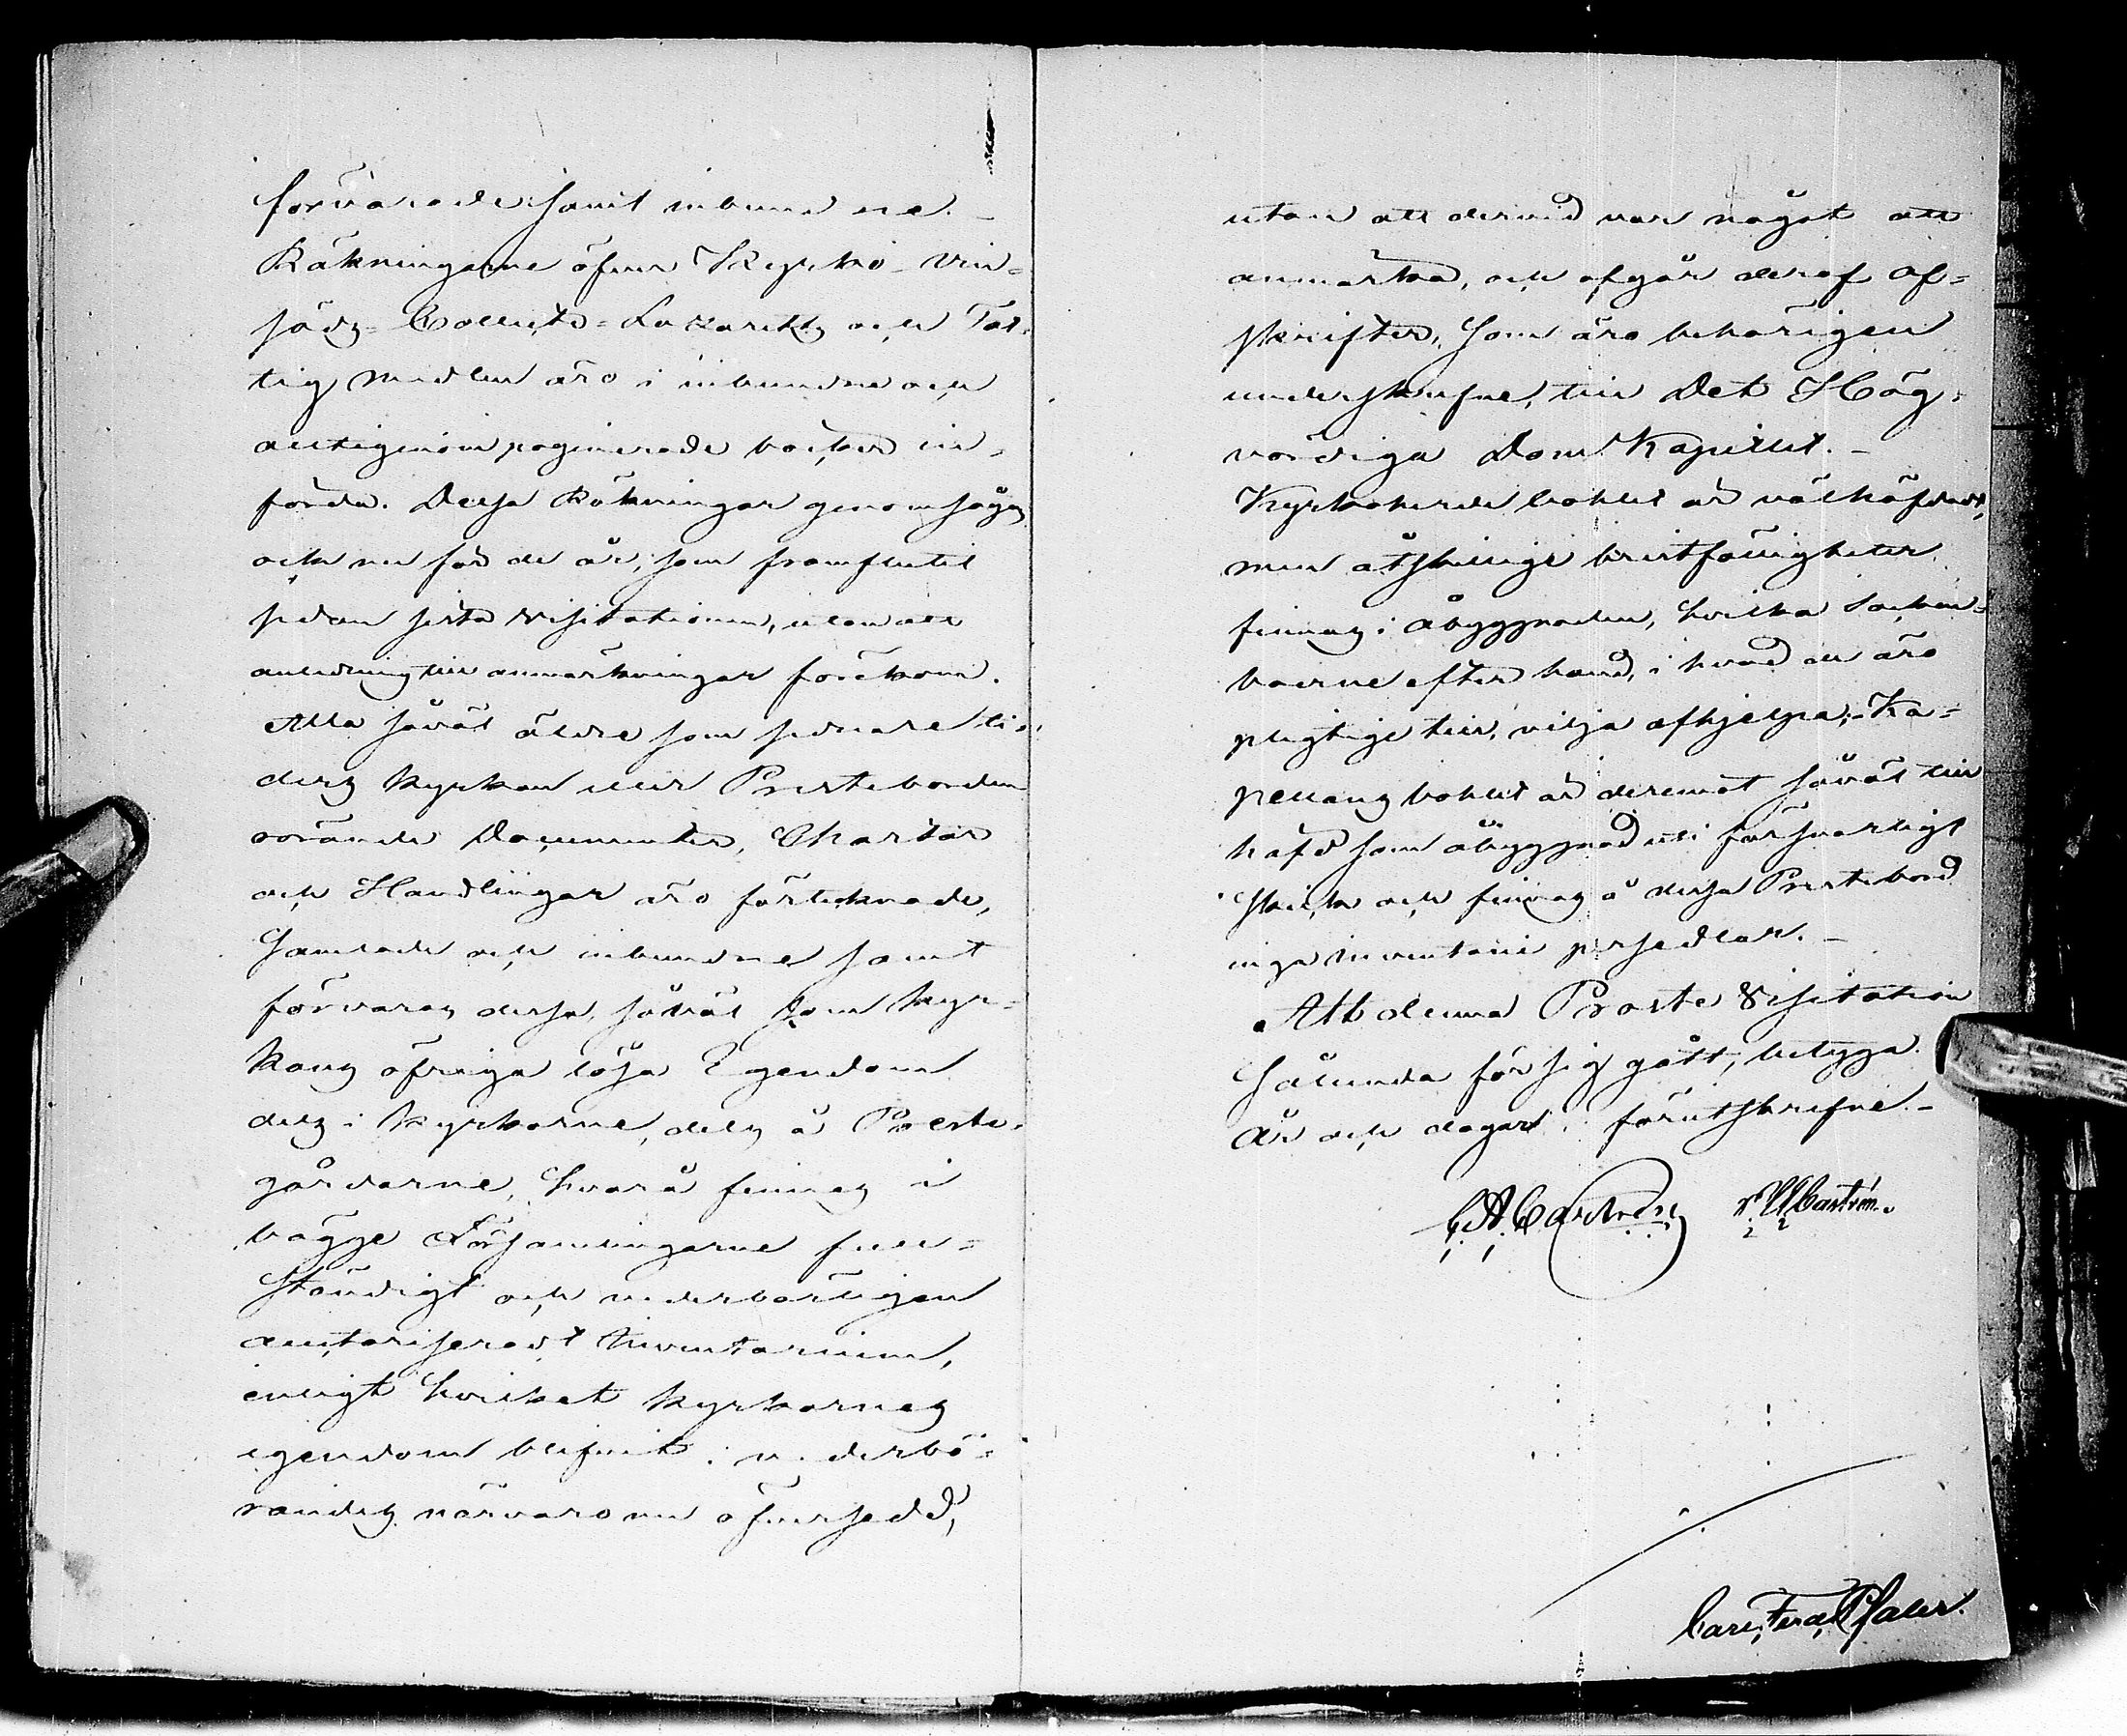 förvarade samt inbundne. –
Räkningarne öfver Kyrko- Vin-
säds- Collects- Lazaretts och Fat-
tig medlen äro i inbundne och
alltigenom paginerade böcker in-
förda. Dessa Räkningar genomsågos
och nu för de år, som framflutit
sedan sista Visitationen, utan att
anledning till anmärkningar förekom.
Alla såväl äldre som sednare ti-
ders kyrkan eller Presteborden
rörande Documenter, Chartor
och Handlingar äro förteknade,
Samlade och inbundne samt
förvaras dessa, såväl som kyr-
kans öfriga lösa Egendom
dels i kyrkorne, dels å Preste-
gårdarne, hvarå finnes i
bägge Församlingarne full-
ständigt och vederbörligen
auctoriseradt Inventarium,
enligt hvilket kyrkornes
egendom blifvit i vederbö-
randes närvaro nu öfversedd,
utan att dervid var något att
anmärka, och afgår deraf af-
skrifter, Som äro behörigen
underskrifne, till Det Hög-
vördiga Dom Kapitlet. –
Kyrkoherde bohlet är välhäfdadt,
men åtskillige bristfälligheter
finnas i åbyggnaden, hvilka Socken-
boerne efter hand, i hvad de äro
pligtige till, vilja afhjelpa; - Ka-
pellans bohlet är deremot såväl till
häfd som åbyggnad uti försvarligt
Skick och finnas å dessa Prestebord
inga Inventarie persedlar. –
Att denna Prosts Visitation
Sålunda för sig gått, betyga.
År och dagar förutskrifne. –
Carl Ferd. Pfaler.